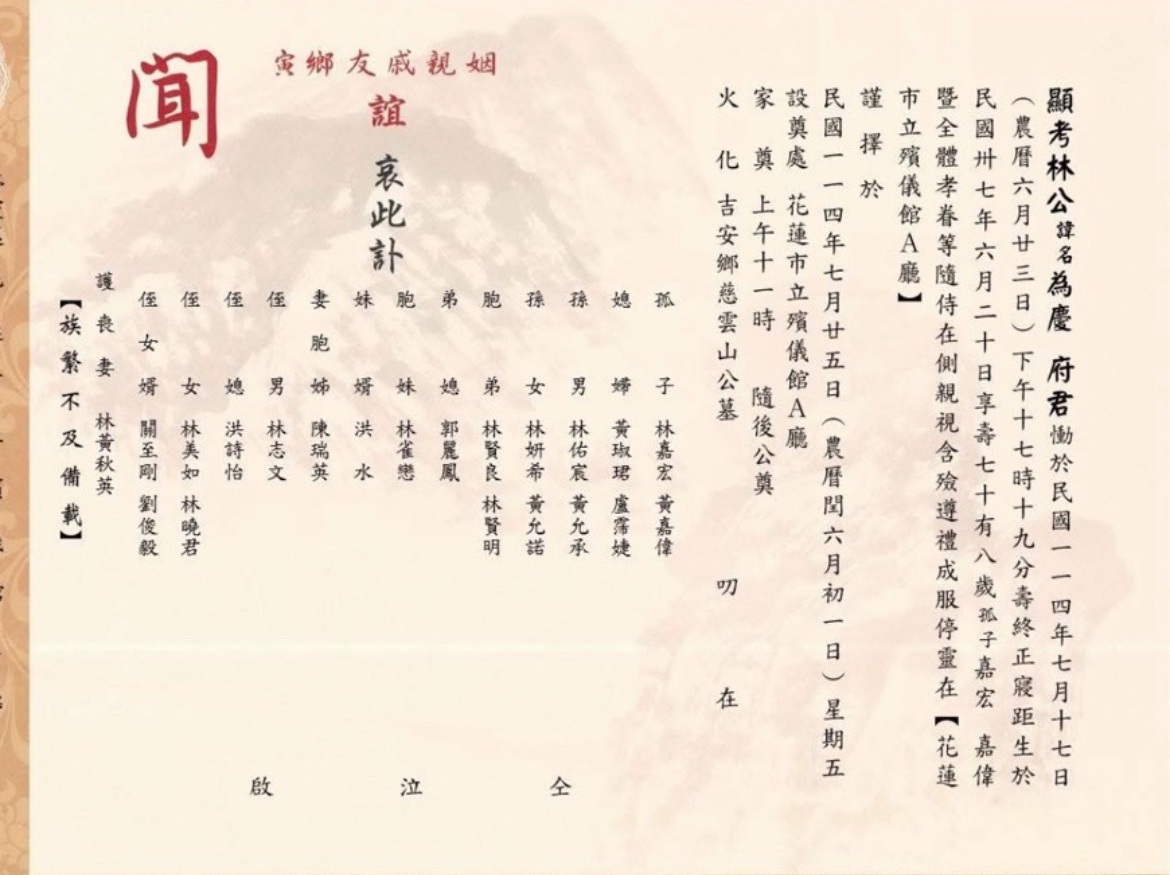 顯考林公諱名為慶 府君慟於民國一一四年七月十七日
（農曆六月廿三日）下午十七時十九分壽終正寢距生於
民國卅七年六月二十日享壽七十有八歲孤子嘉宏 嘉偉
暨全體孝眷等隨侍在側親視含殮遵禮成服停靈在【花蓮
市立殯儀館A廳】
謹擇於
民國一一四年七月廿五日（農曆閏六月初一日）星期五
設奠處 花蓮市立殯儀館A廳
家奠 上午十一時 隨後公奠
火化 吉安鄉慈雲山公墓
叨在
姻親戚友鄉寅
誼
哀此訃
聞
孤子 林嘉宏 黃嘉偉
媳婦 黃琡珺 盧霈婕
孫男 林佑宸 黃允承
孫女 林妍希 黃允諾
胞弟 林賢良 林賢明
弟媳 郭麗鳳
胞妹 林雀戀
妹婿 洪水
妻胞姊 陳瑞英
侄男 林志文
侄媳 洪詩怡
侄女 林美如 林曉君
侄女婿 關至剛 劉俊毅
護喪妻 林黃秋英
【族繁不及備載】
仝泣啟